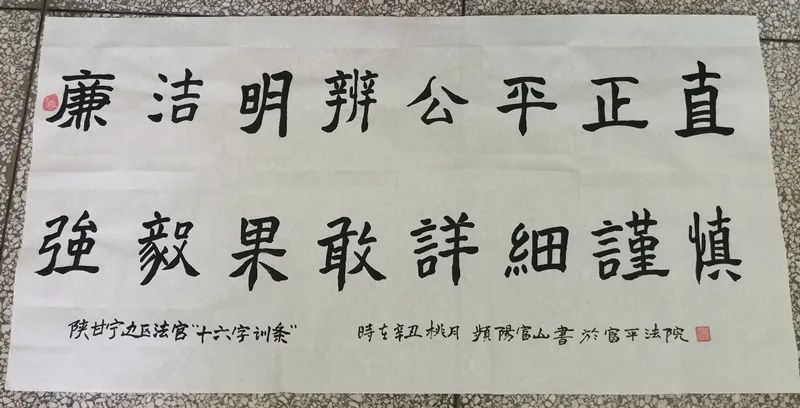 廉洁明辨公平正直
強毅果敢詳細謹慎
陕甘宁边区法官"十六字训条" 時在辛丑桃月 頻陽富山書於富平法院